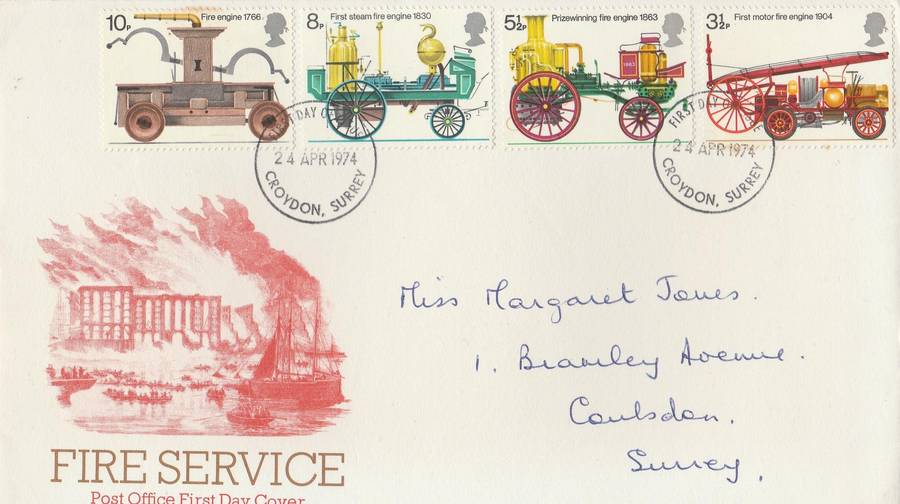 10P Fire engine 1766
8P First steam fire engine 1830
5½P Prizewinning fire engine 1863
1863
3½P First motor fire engine 1904
FIRST DAY OF
24 APR 1974
CROYDON, SURREY
FIRST DAY OF
24 APR 1974
CROYDON, SURREY
Miss Margaret Jones.
1, Bramley Avenue.
Coulsdon.
Surrey.
FIRE SERVICE
Post Office First Day Cover